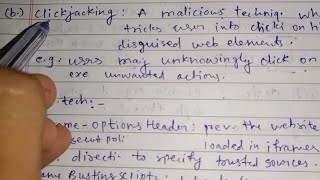 (b.) Clickjacking: A malicious techniq. wh
tricks user into clicki on hi
disguised web elements.
e.g. usrs may unknowingly click on
exe unwanted actions.
tech:-
ame-Options Header: prev. the website
loaded in iframes
directi to specify trusted sources.
ame Busting scripts: